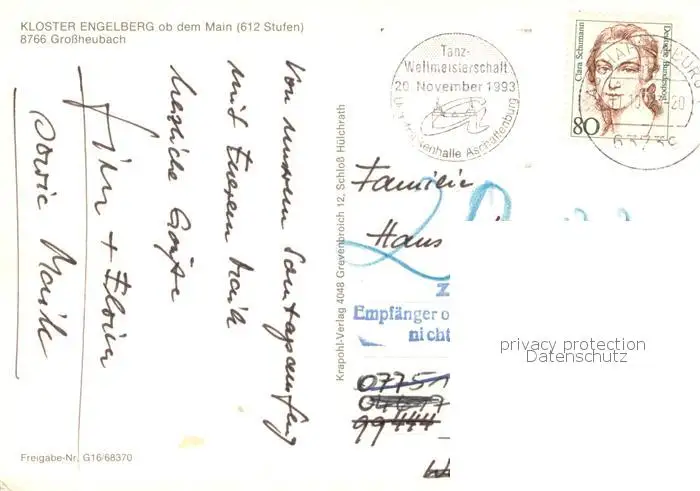 KLOSTER ENGELBERG ob dem Main (612 Stufen)
8766 Großheubach
Von unserem Sonntagsausflug
mit Eurem Maik
herzliche Grüße
sowie Maik
Krapohl-Verlag 4048 Grevenbroich 12, Schloß Hülchrath
Freigabe-Nr. G16/68370
Tanz-
Weltmeisterschaft
20. November 1993
Aschaffenburg
Clara Schumann
Deutsche Bundespost
80
63739
Familie
Hans
Empfänger
nicht
0775
04617
99444
privacy protection
Datenschutz